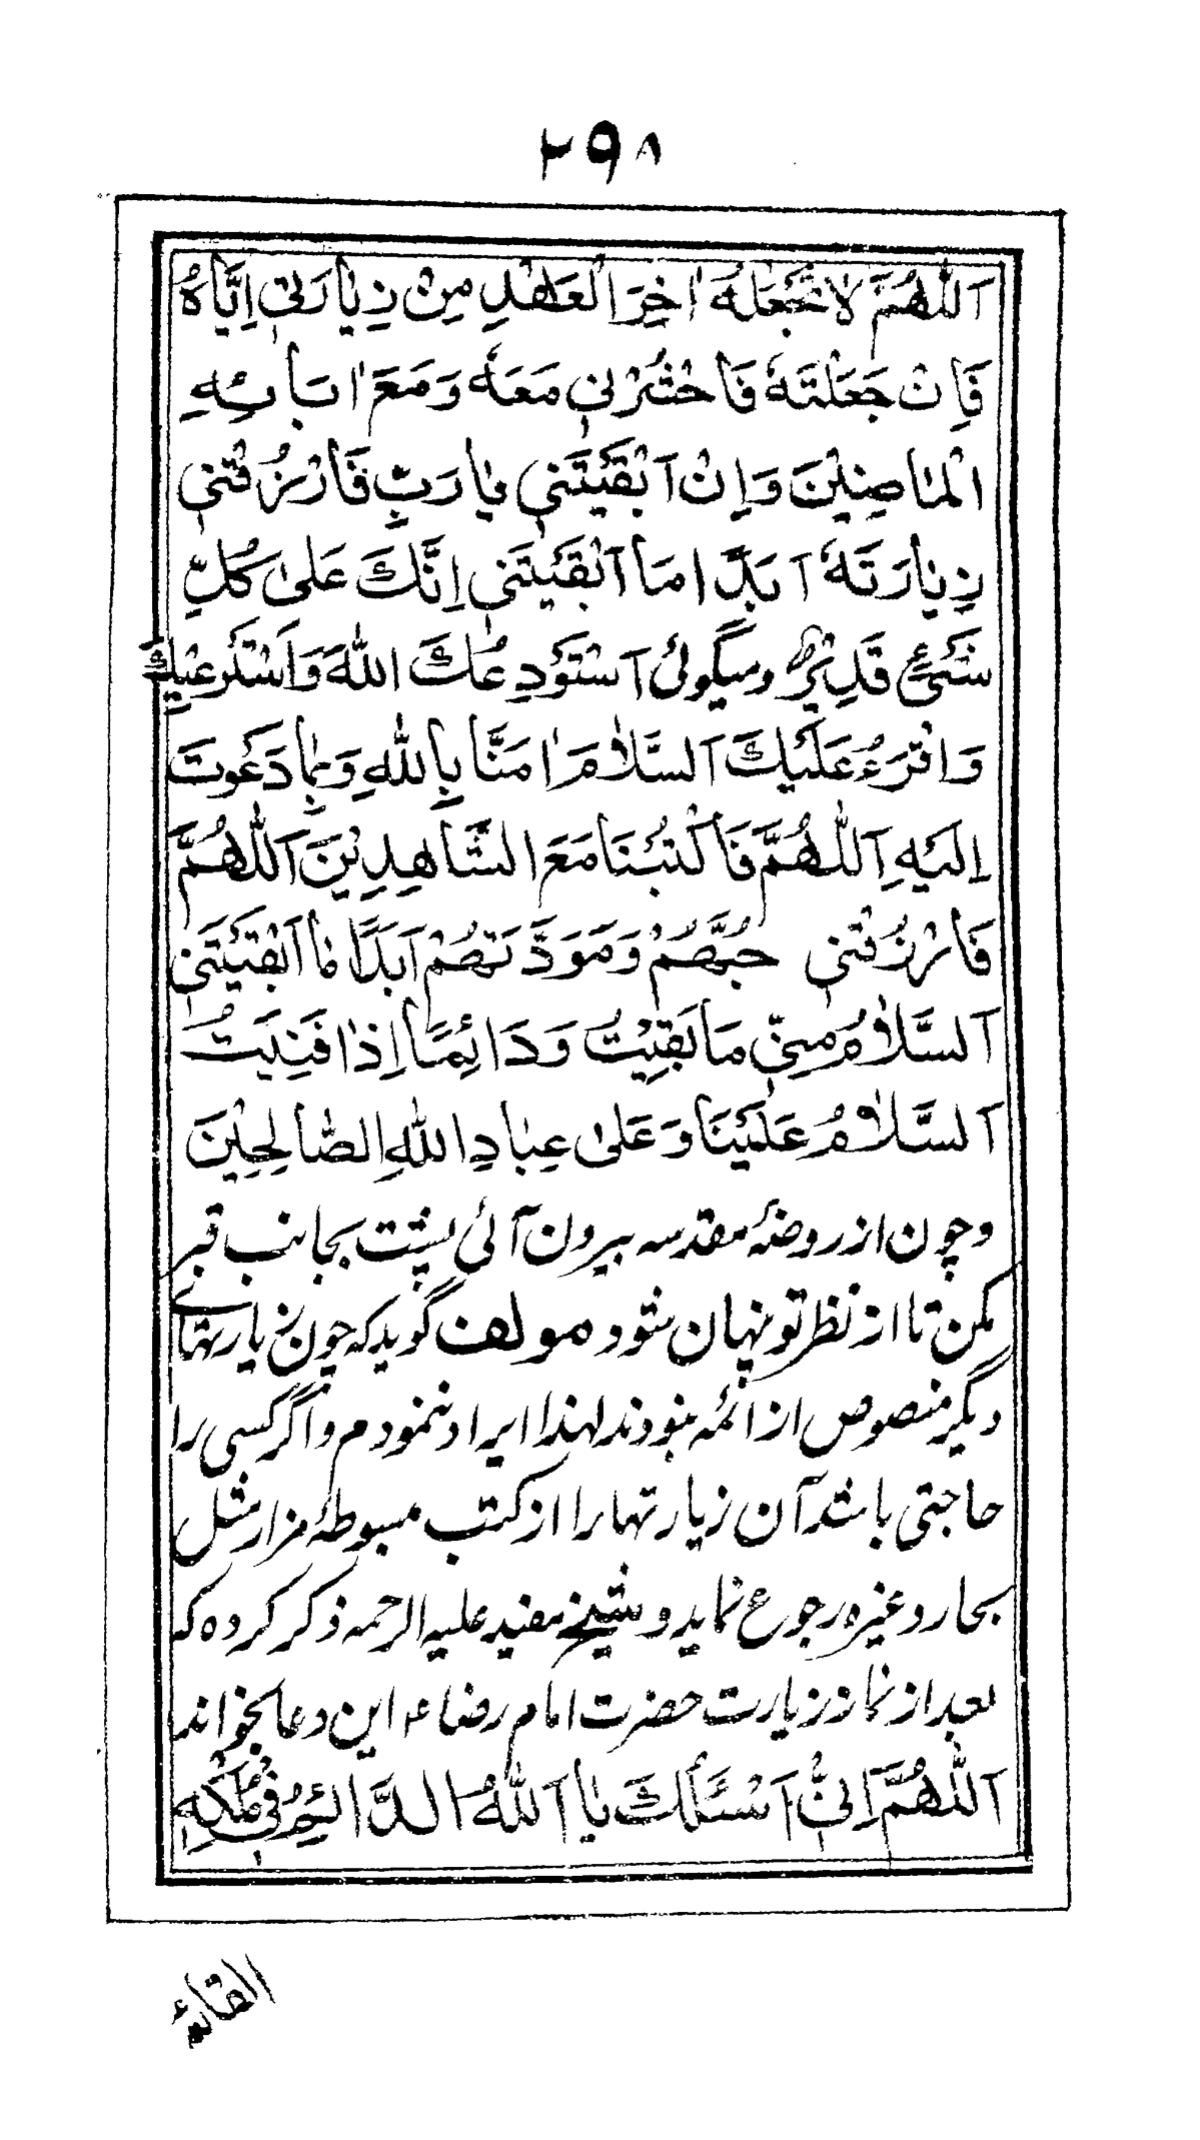 ۲۹۸
اَللّٰهُمَّ لَا تَجْعَلْهُ اٰخِرَ الْعَهْدِ مِنْ زِيَارَتِيْ اِيَّاهُ
فَاِنْ جَعَلْتَهٗ فَاحْشُرْنِيْ مَعَهٗ وَمَعَ اٰبَائِهِ
الْمَاضِيْنَ وَاِنْ اَبْقَيْتَنِيْ يَا رَبِّ فَارْزُقْنِيْ
زِيَارَتَهٗ اَبَدًا مَا اَبْقَيْتَنِيْ اِنَّكَ عَلٰى كُلِّ
شَيْءٍ قَدِيْرٌ ومیگوئی اَسْتَوْدِعُكَ اللهَ وَاَسْتَرْعِيْكَ
وَاقْرَءُ عَلَيْكَ السَّلَامَ اٰمَنَّا بِاللهِ وَبِمَا دَعَوْتَ
اِلَيْهِ اَللّٰهُمَّ فَاكْتُبْنَا مَعَ الشَّاهِدِيْنَ اَللّٰهُمَّ
فَارْزُقْنِيْ حُبَّهُمْ وَمَوَدَّتَهُمْ اَبَدًا مَا اَبْقَيْتَنِيْ
اَلسَّلَامُ مِنِّيْ مَا بَقِيْتُ وَدَائِمًا اِذَا فَنِيْتُ
اَلسَّلَامُ عَلَيْنَا وَعَلٰى عِبَادِ اللهِ الصَّالِحِيْنَ
وچون از روضۂ مقدسه بیرون آئی پشت بجانب قبر
مکن تا از نظر تو پنهان شود مولف گوید که چون زیارتهائے
دیگر منصوص از ائمه نبودند لهذا ایراد ننمودم و اگر کسی را
حاجتی باشد آن زیارتها را از کتب مبسوطۂ مزار مثل
بحار و غیره رجوع نماید و شیخ مفید علیه الرحمه ذکر کرده که
بعد از نماز زیارت حضرت امام رضا ء این دعا بخواند
اَللّٰهُمَّ اِنِّيْ اَسْئَلُكَ يَا اَللهُ الدَّائِمُ فِيْ مُلْكِهِ
القائم